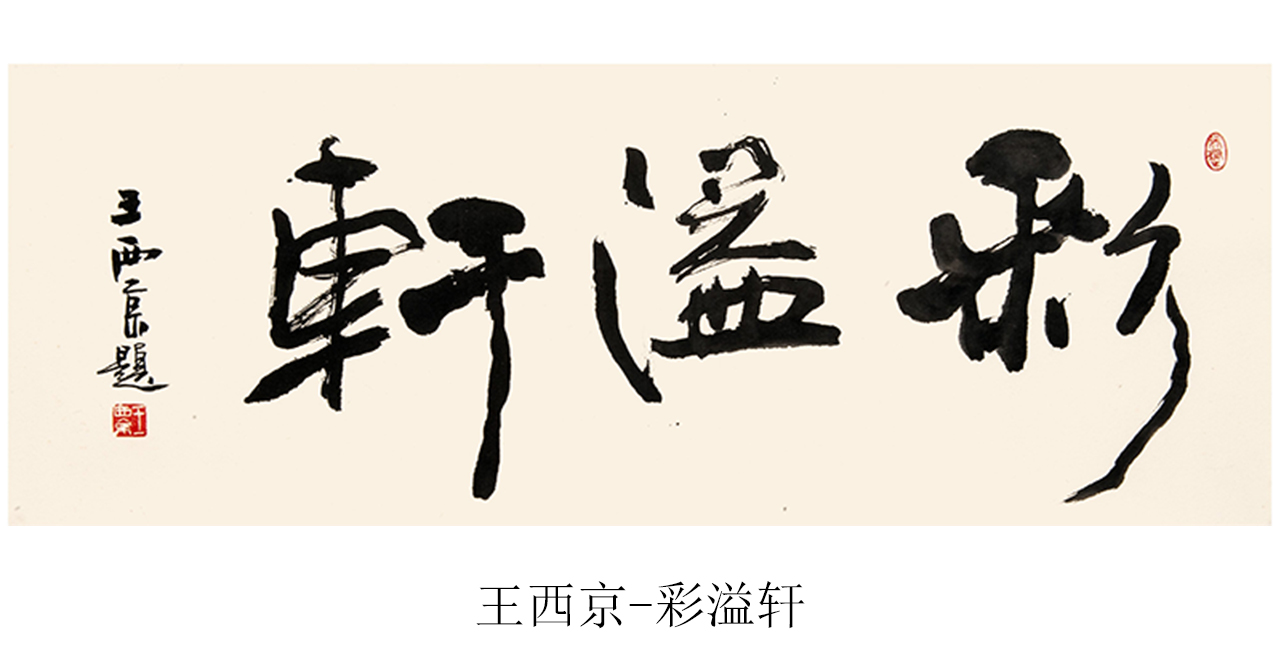 彩溢軒
王西京題
王西京-彩溢轩